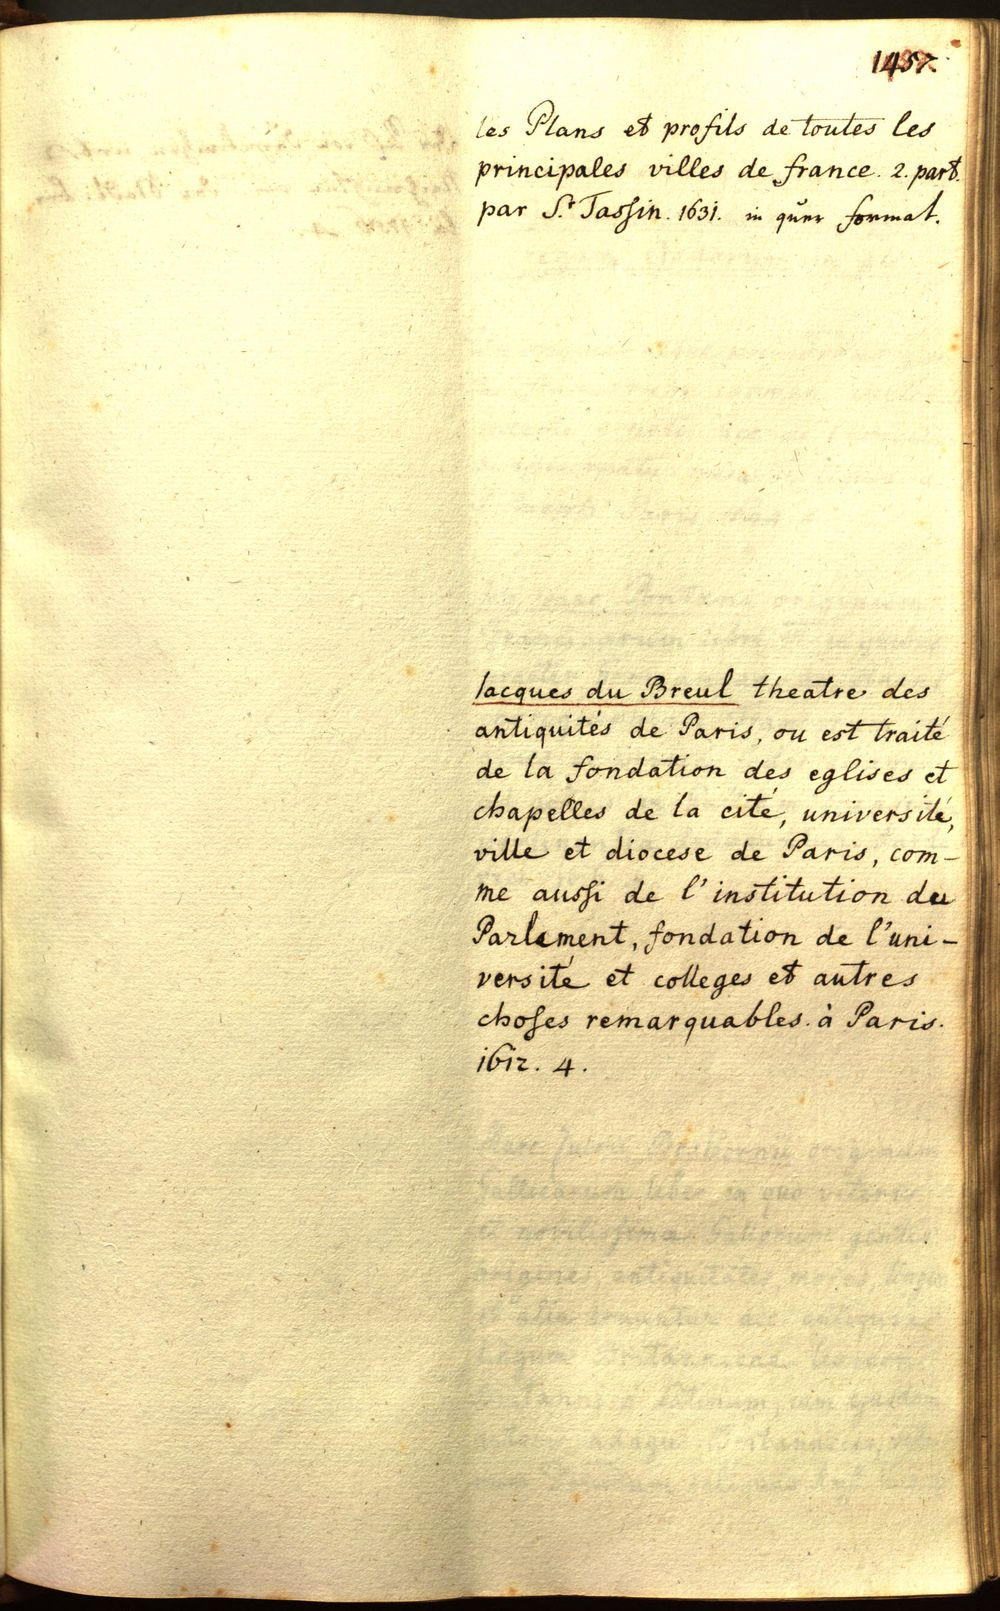 1457.
les Plans et profils de toutes les
principales villes de france. 2. part.
par S.r Tassin. 1631. in quer format.
Jacques du Breul theatre des
antiquités de Paris, ou est traité
de la fondation des eglises et
chapelles de la cité, université,
ville et diocese de Paris, com-
me aussi de l'institution du
Parlement, fondation de l'uni-
versité et colleges et autres
choses remarquables. à Paris.
1612. 4.